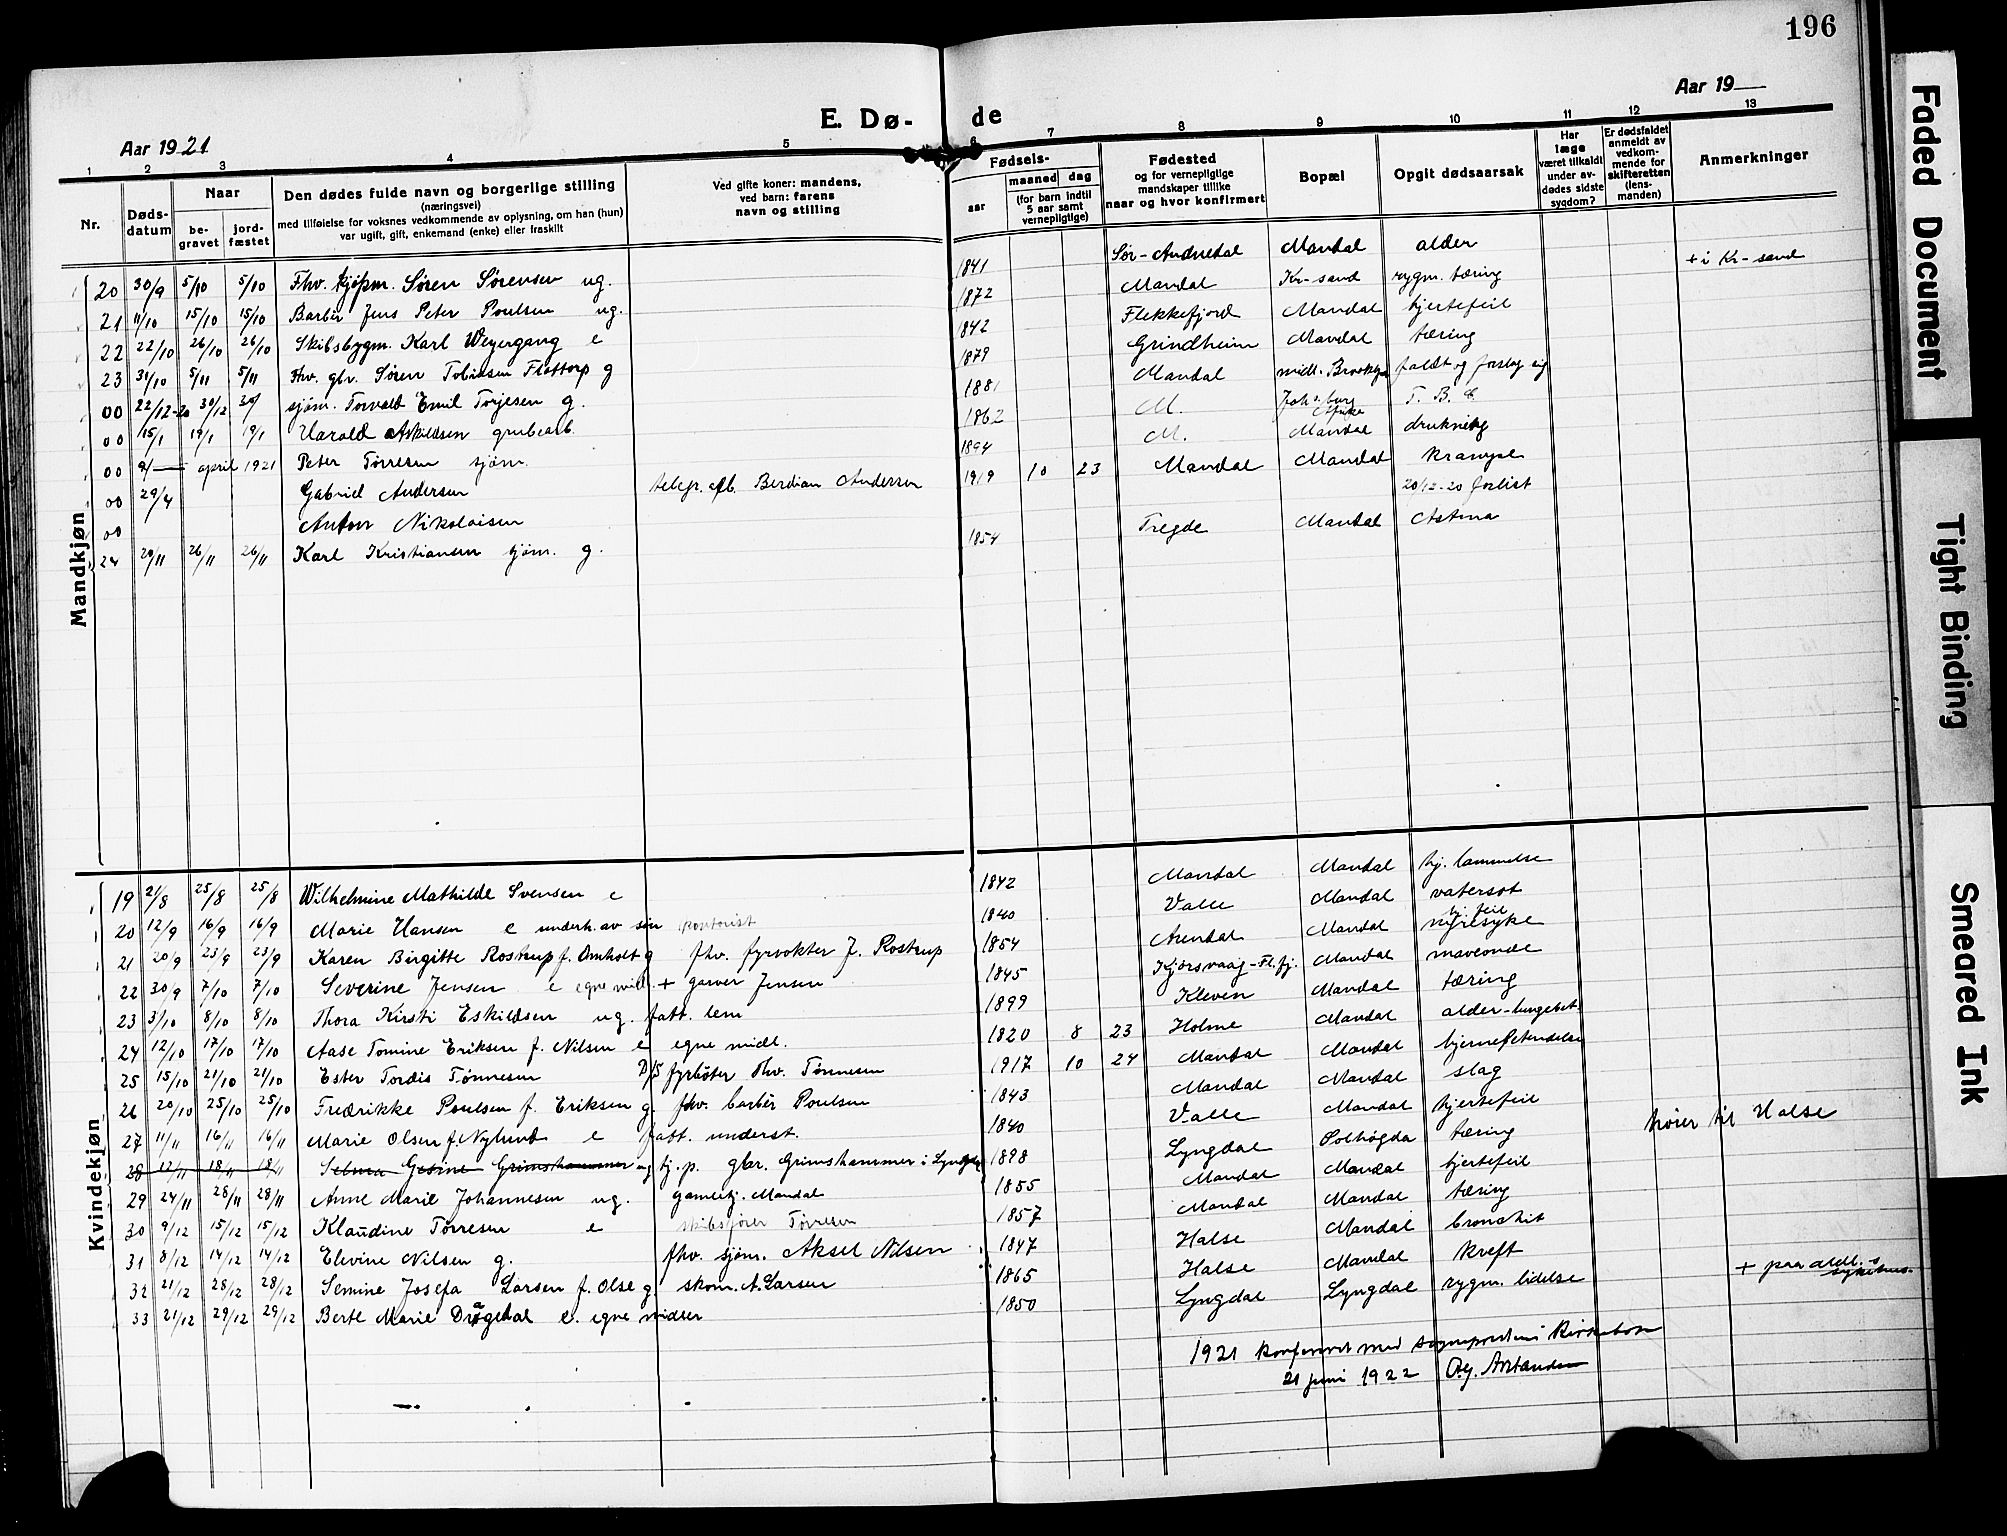 196
Aar 1921
E. Dø-
de
Aar 19
1 2 3 4 5 6 7 8 9 10 11 12 13
Nr.
Døds-
datum
Naar
be-
gravet
jord-
fæstet
Den dødes fulde navn og borgerlige stilling
(næringsvei)
med tilføielse for voksnes vedkommende av oplysning, om han (hun)
var ugift, gift, enkemand (enke) eller fraskilt
Ved gifte koner: mandens,
ved barn: farens
navn og stilling
Fødsels-
aar
maaned dag
(for barn indtil
5 aar samt
vernepligtige)
Fødested
og for vernepligtige
mandskaper tillike
naar og hvor konfirmert
Bopæl
Opgit dødsaarsak
Har
læge
været tilkaldt
under av-
dødes sidste
sygdom?
Er dødsfaldet
anmeldt av
vedkom-
mende for
skifteretten
(lens-
manden)
Anmerkninger
Mandkjøn
20 30/9 5/10 5/10 Fhv. kjøpm. Søren Sørensen ug. 1841 Sør-Audnedal Mandal alder
21 11/10 15/10 15/10 Barbér Jens Peter Poulsen ug. 1872 Mandal Kr-sand rygm. tæring + i Kr-sand
22 22/10 26/10 26/10 Skibsbygm. Karl Weyergang e 1842 Flekkefjord Mandal hjertefeil
23 31/10 5/11 5/11 Fhv. gbr. Søren Tobiasen Flottorp g 1879 Grindheim Mandal tæring
00 22/12-20 30/12 sjøm. Torvald Emil Torjesen g. 1881 Mandal midl. Brooklyn faldt og forslog sig
00 15/1 19/1 19/1 Harald Askildsen grubearb. 1862 M. Joh.burg Afrika T. B. C.
00 april 1921 Peter Tørresen sjøm. 1894 M. Mandal drukning
00 29/4 Gabriel Andersen telegr. arb. Berdian Andersen 1919 10 23 Mandal Mandal krampe
00 Anton Nikolaisen 20/12-20 forlist
24 20/11 26/11 26/11 Karl Kristiansen sjøm. g. 1854 Tregde Mandal Astma
Kvindekjøn
19 21/8 25/8 25/8 Wilhelmine Mathilde Svensen e 1842 Mandal Mandal hj. lammelse
20 12/9 16/9 16/9 Marie Hansen e underh. av søn kontorist 1840 Valle Mandal vatersot
21 20/9 23/9 23/9 Karen Birgitte Rostrup f. Omholt g fhv. fyrvokter J. Rostrup 1854 Arendal Mandal hj. feil nyresyke
22 30/9 7/10 7/10 Severine Jensen e egne midl. + garver Jensen 1845 Kjørsvaag-Fl.fj. Mandal maveonde
23 3/10 8/10 8/10 Thora Kirsti Eskildsen ug. fatt. lem 1899 Kleven Mandal tæring
24 12/10 17/10 17/10 Aase Tomine Eriksen f. Nilsen e egne midl. 1820 8 23 Holme Mandal alder-lungebet.
25 15/10 21/10 21/10 Ester Tordis Tønnesen D/S fyrbøter Thv. Tønnesen 1917 10 24 Mandal Mandal hjernebetendelse
26 20/10 25/10 25/10 Fredrikke Poulsen f. Eriksen g. fhv. barbér Poulsen 1843 Mandal Mandal slag
27 11/11 16/11 16/11 Marie Olsen f. Nylund e fatt. underst. 1840 Valle Mandal hjertefeil
28 12/11 18/11 18/11 Selma Gesine Grimshammer ug tj. p. gbr. Grimshammer i Lyngdal 1898 Lyngdal Solhøgda tæring hører til Halse
29 24/11 28/11 28/11 Anne Marie Johannesen ug. gamlehj. Mandal 1855 Mandal Mandal hjertefeil
30 9/12 15/12 15/12 Klaudine Tørresen e skibsfører Tørresen 1857 Mandal Mandal tæring
31 8/12 14/12 14/12 Elevine Nilsen g. fhv. sjøm. Aksel Nilsen 1847 Halse Mandal bronchit
32 21/12 28/12 28/12 Semine Josefa Larsen f. Olse g skom. A. Larsen 1865 Halse Mandal kreft
33 21/12 29/12 29/12 Berte Marie Drageland e. egne midler 1850 Lyngdal Lyngdal rygm. lidelse + paa amtl. sykehus.
1921 konferert med sogneprestens Kirkebok
21 juni 1922
Faded Document
Tight Binding
Smeared Ink